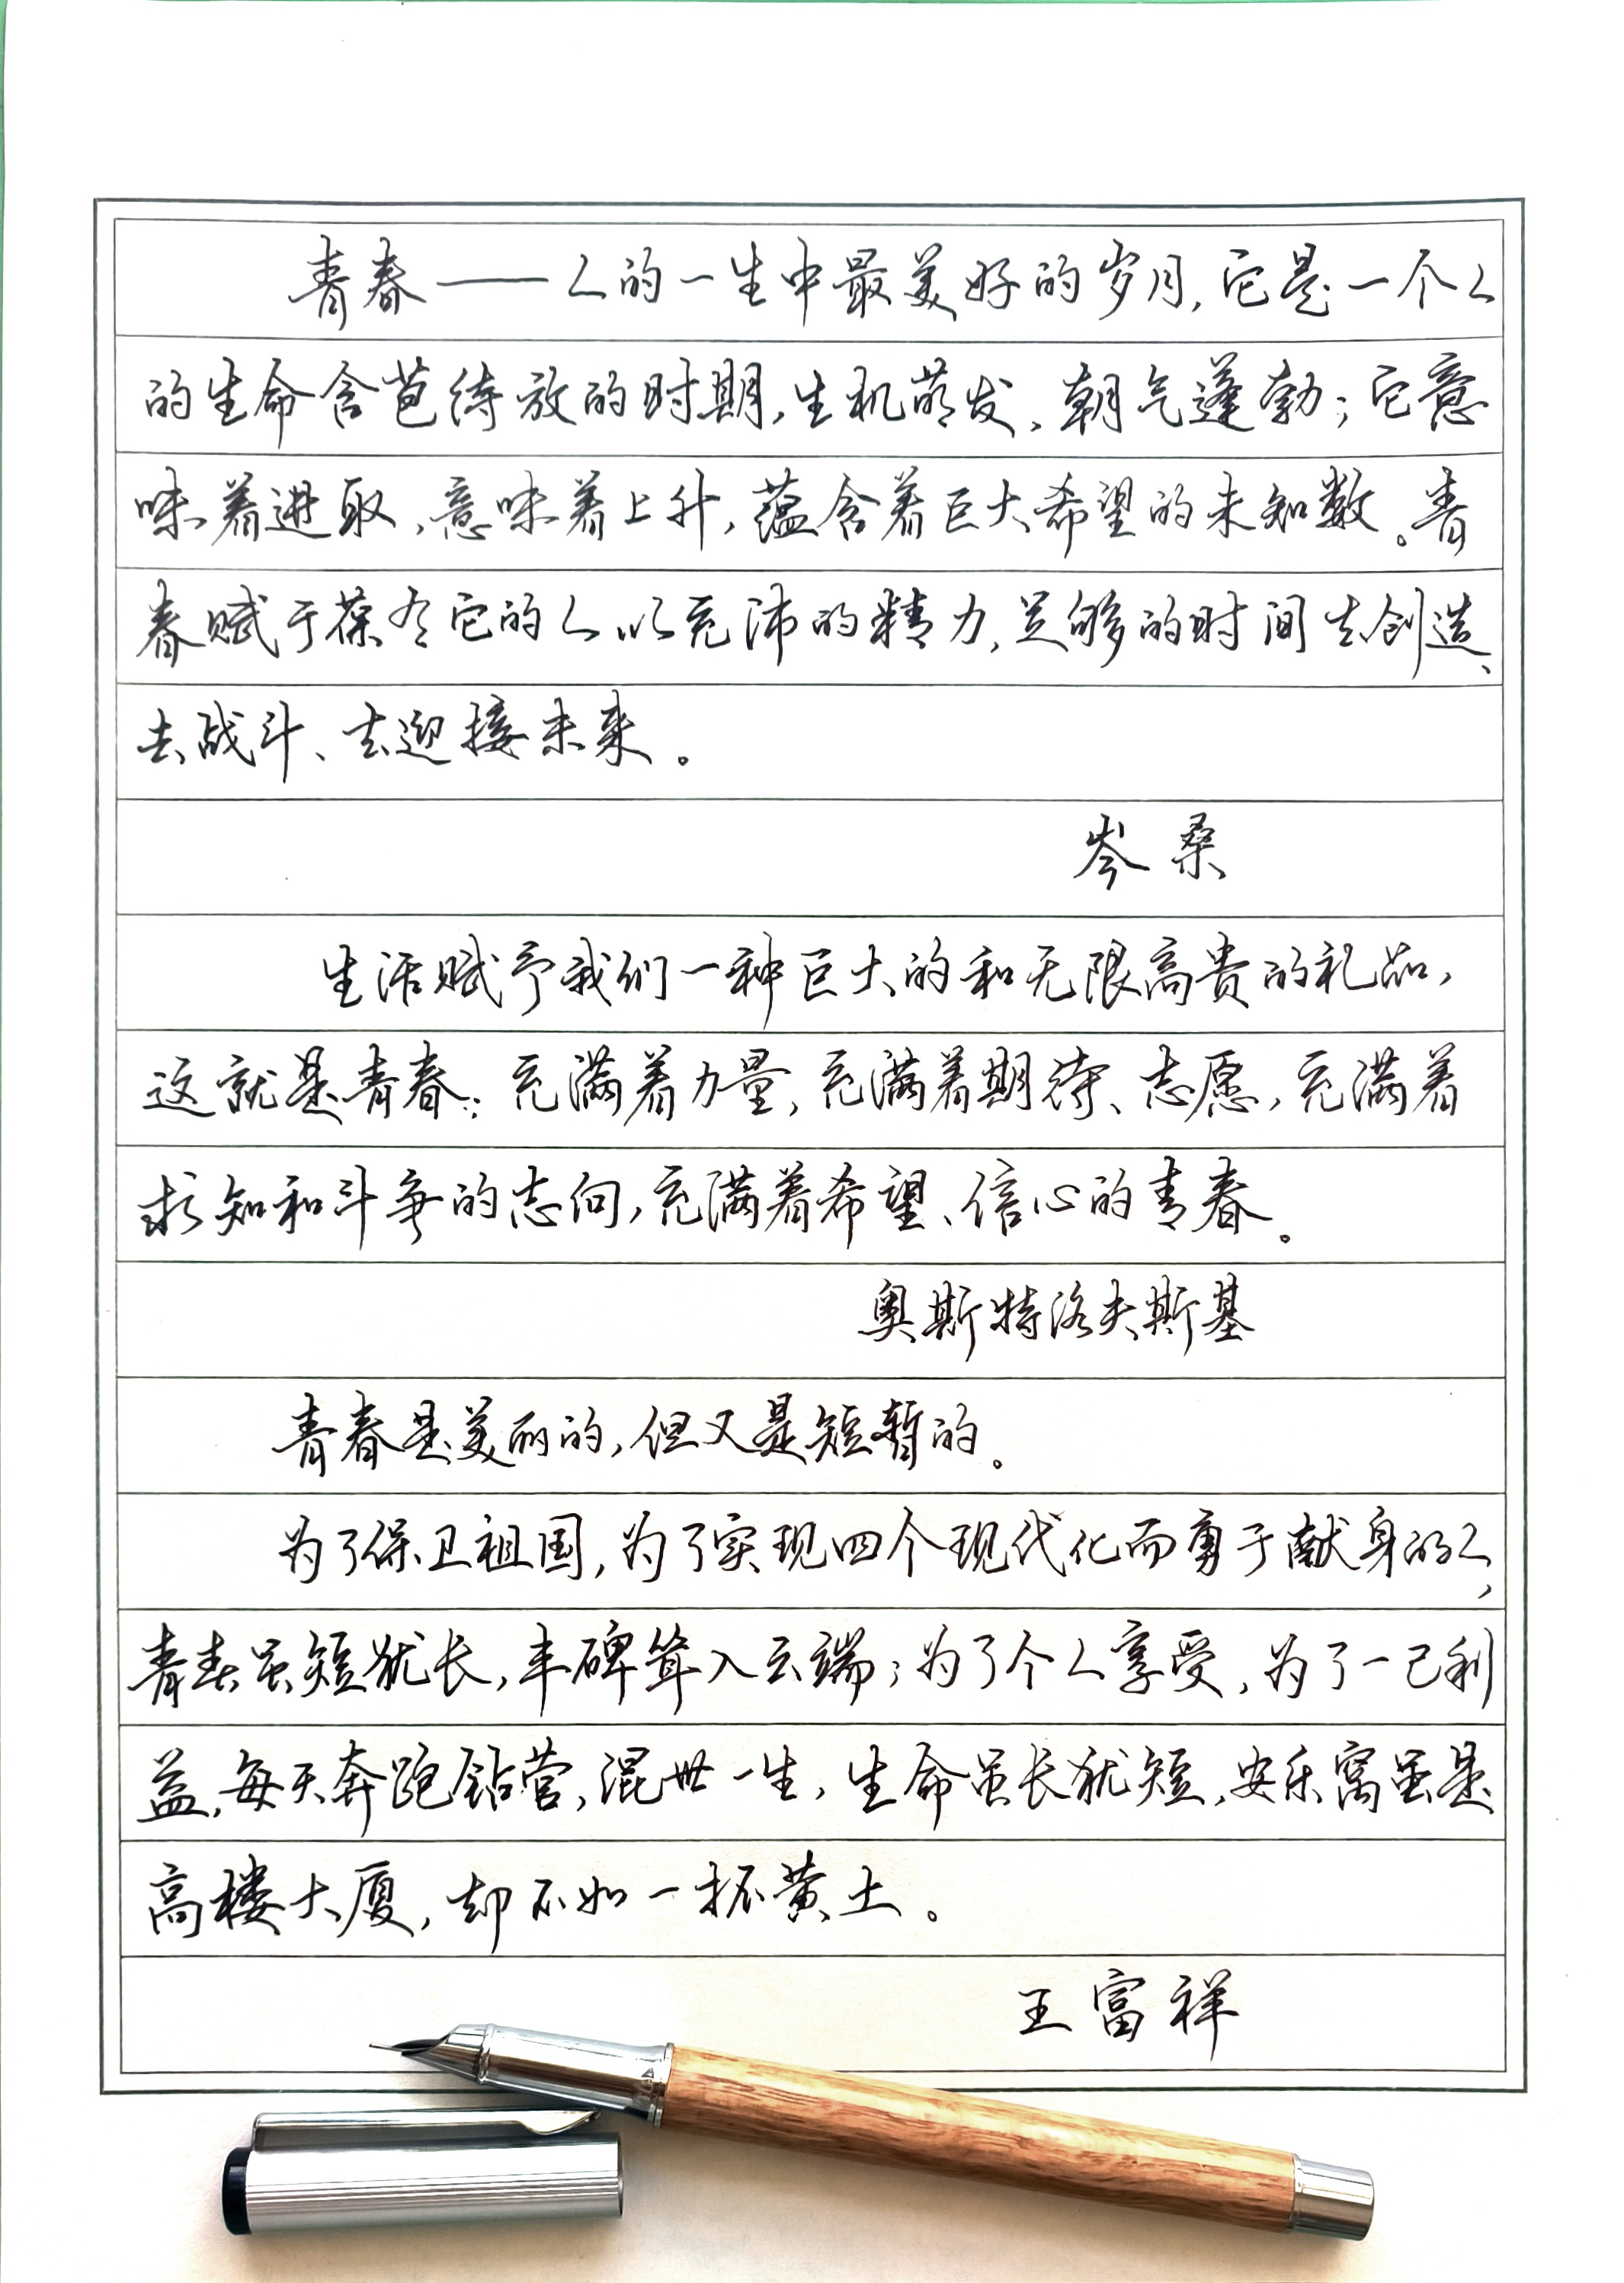 青春——人的一生中最美好的岁月，它是一个人
的生命含苞待放的时期，生机萌发、朝气蓬勃；它意
味着进取，意味着上升，蕴含着巨大希望的未知数。青
春赋于葆有它的人以充沛的精力，足够的时间去创造、
去战斗、去迎接未来。
岑桑
生活赋予我们一种巨大的和无限高贵的礼品，
这就是青春：充满着力量，充满着期待、志愿，充满着
求知和斗争的志向，充满着希望、信心的青春。
奥斯特洛夫斯基
青春是美丽的，但又是短暂的。
为了保卫祖国，为了实现四个现代化而勇于献身的人，
青春虽短犹长，丰碑耸入云端；为了个人享受，为了一己利
益，每天奔跑钻营，混世一生，生命虽长犹短，安乐窝虽是
高楼大厦，却不如一抔黄土。
王富祥